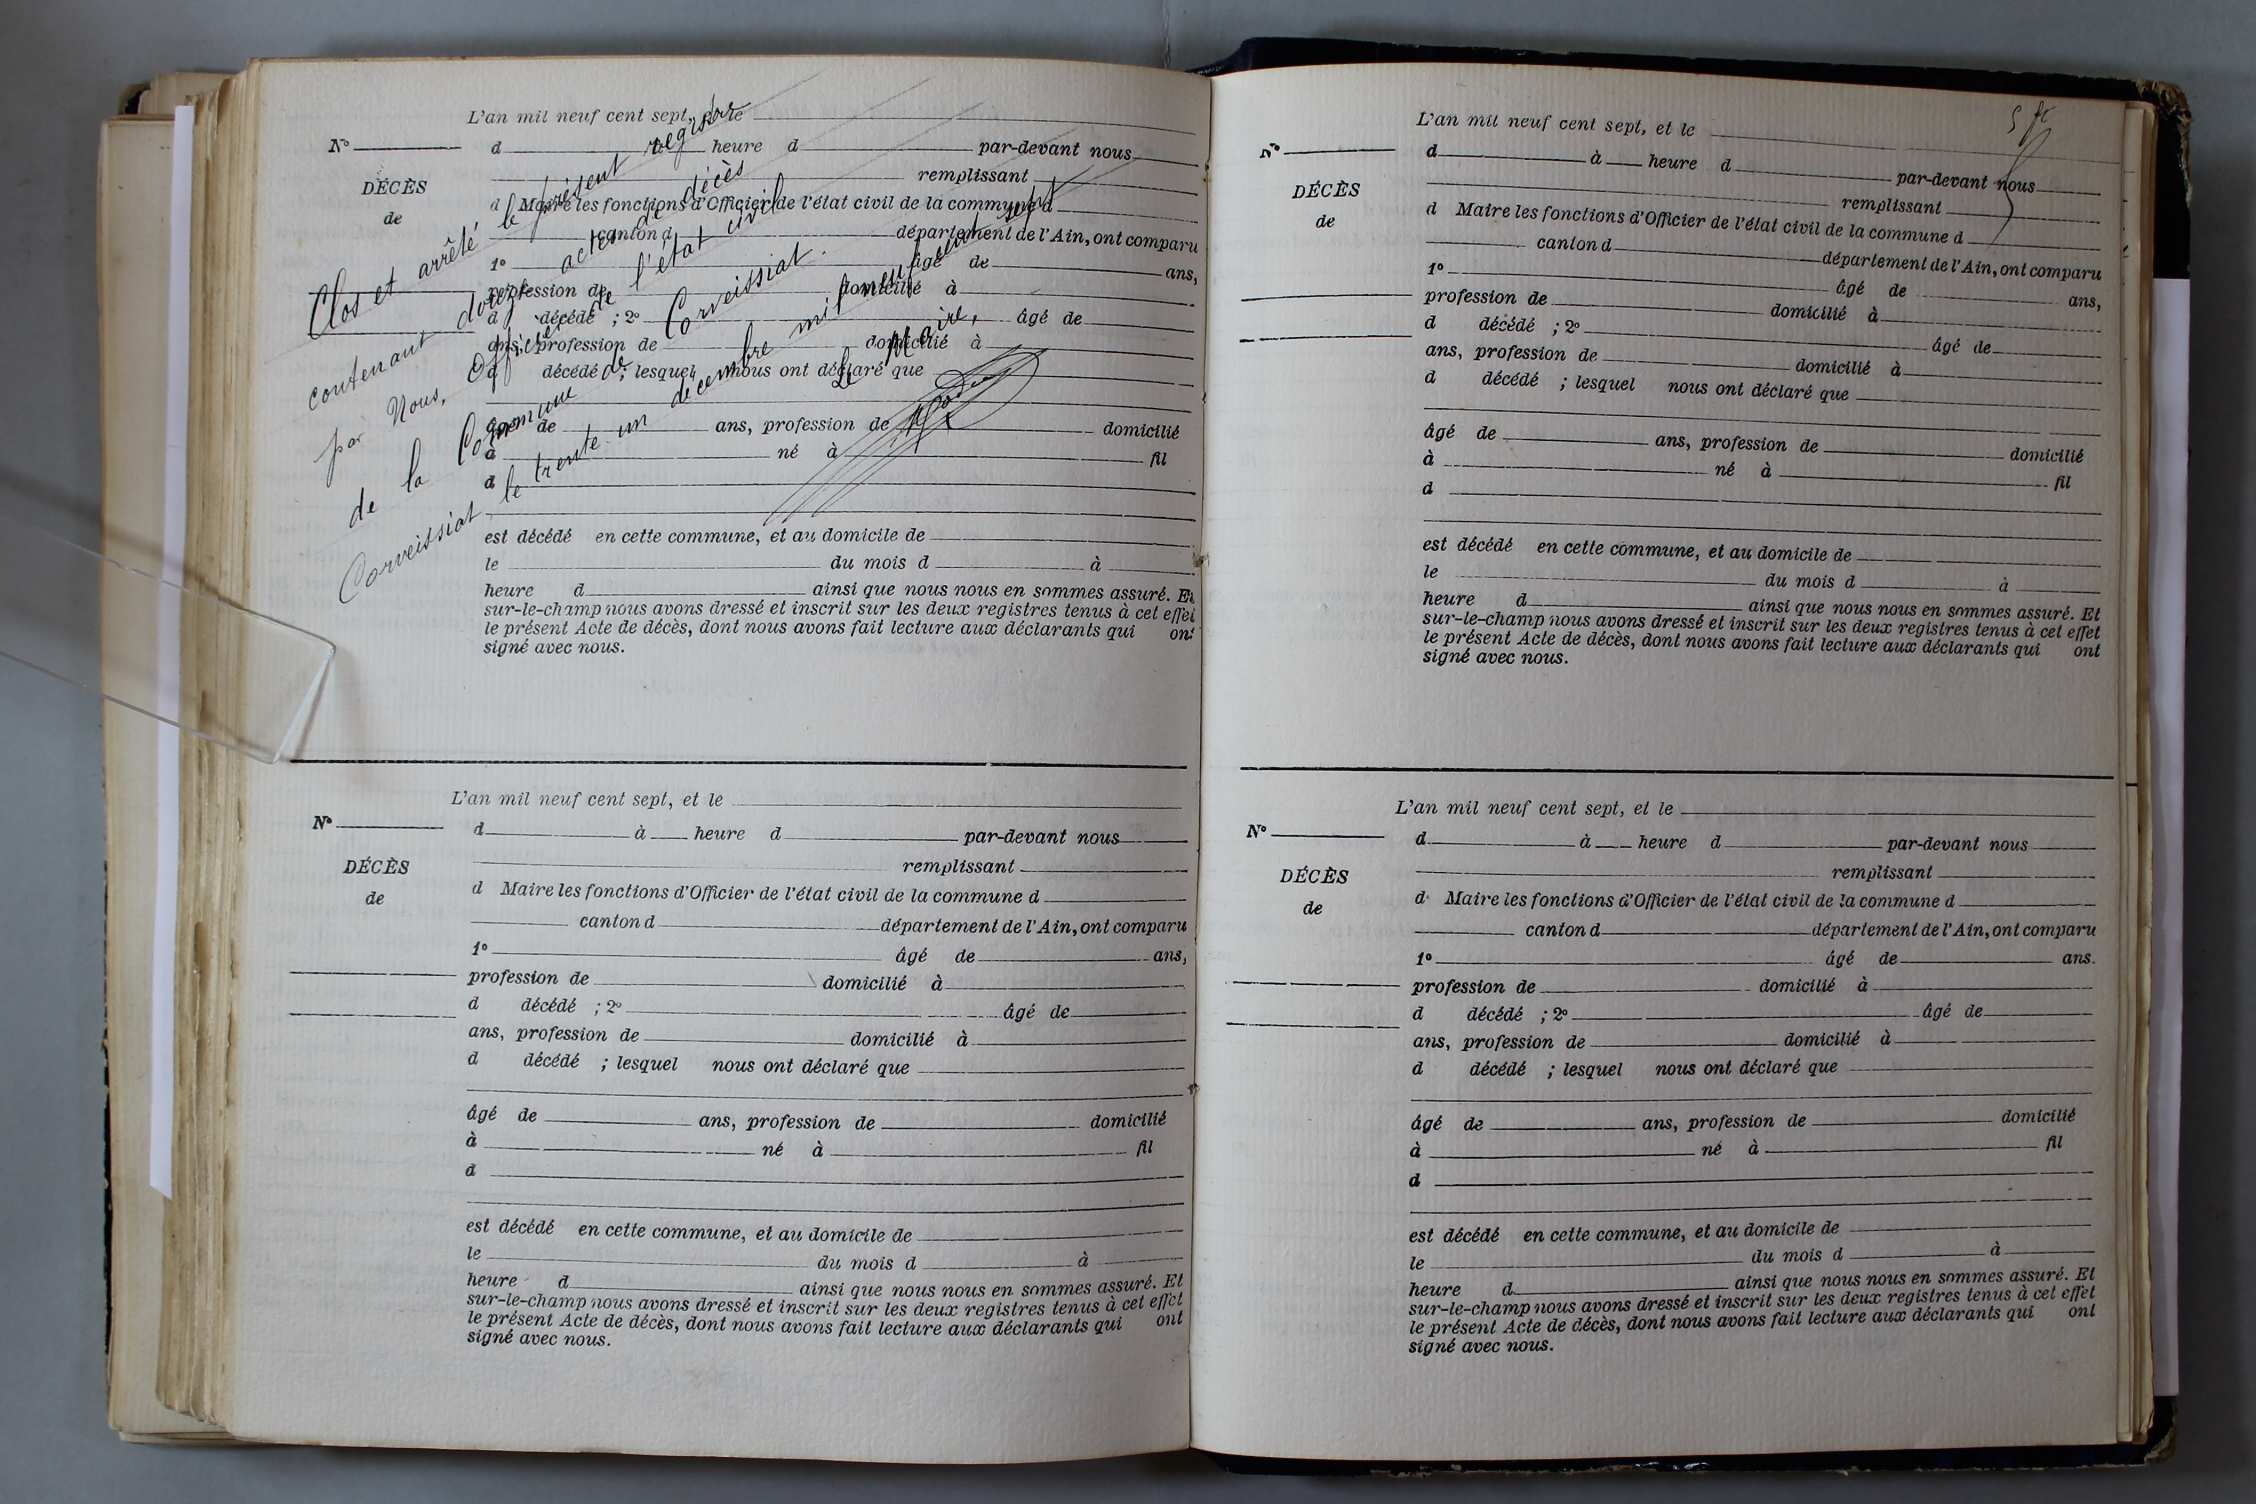 L'an mil neuf cent sept, et le
N° d à heure d par-devant nous
DÉCÈS
de
remplissant
d Maire les fonctions d'Officier de l'état civil de la commune d
canton d département de l'Ain, ont comparu
1° âgé de ans,
profession de domicilié à
d décédé ; 2° âgé de
ans, profession de domicilié à
d décédé ; lesquel nous ont déclaré que
âgé de ans, profession de domicilié
à né à fil
d
est décédé en cette commune, et au domicile de
le du mois d à
heure d ainsi que nous nous en sommes assuré. Et
sur-le-champ nous avons dressé et inscrit sur les deux registres tenus à cet effet
le présent Acte de décès, dont nous avons fait lecture aux déclarants qui ont
signé avec nous.
Clos et arrêté le présent registre
contenant douze actes de décès
par Nous, Officier de l'état civil
de la Commune de Corveissiat.
Corveissiat le trente-un décembre mil neuf cent sept
Le Maire,
L'an mil neuf cent sept, et le
N° d à heure d par-devant nous
DÉCÈS
de
remplissant
d Maire les fonctions d'Officier de l'état civil de la commune d
canton d département de l'Ain, ont comparu
1° âgé de ans,
profession de domicilié à
d décédé ; 2° âgé de
ans, profession de domicilié à
d décédé ; lesquel nous ont déclaré que
âgé de ans, profession de domicilié
à né à fil
d
est décédé en cette commune, et au domicile de
le du mois d à
heure d ainsi que nous nous en sommes assuré. Et
sur-le-champ nous avons dressé et inscrit sur les deux registres tenus à cet effet
le présent Acte de décès, dont nous avons fait lecture aux déclarants qui ont
signé avec nous.
L'an mil neuf cent sept, et le
N° d à heure d par-devant nous
DÉCÈS
de
remplissant
d Maire les fonctions d'Officier de l'état civil de la commune d
canton d département de l'Ain, ont comparu
1° âgé de ans,
profession de domicilié à
d décédé ; 2° âgé de
ans, profession de domicilié à
d décédé ; lesquel nous ont déclaré que
âgé de ans, profession de domicilié
à né à fil
d
est décédé en cette commune, et au domicile de
le du mois d à
heure d ainsi que nous nous en sommes assuré. Et
sur-le-champ nous avons dressé et inscrit sur les deux registres tenus à cet effet
le présent Acte de décès, dont nous avons fait lecture aux déclarants qui ont
signé avec nous.
L'an mil neuf cent sept, et le
N° d à heure d par-devant nous
DÉCÈS
de
remplissant
d Maire les fonctions d'Officier de l'état civil de la commune d
canton d département de l'Ain, ont comparu
1° âgé de ans.
profession de domicilié à
d décédé ; 2° âgé de
ans, profession de domicilié à
d décédé ; lesquel nous ont déclaré que
âgé de ans, profession de domicilié
à né à fil
d
est décédé en cette commune, et au domicile de
le du mois d à
heure d ainsi que nous nous en sommes assuré. Et
sur-le-champ nous avons dressé et inscrit sur les deux registres tenus à cet effet
le présent Acte de décès, dont nous avons fait lecture aux déclarants qui ont
signé avec nous.